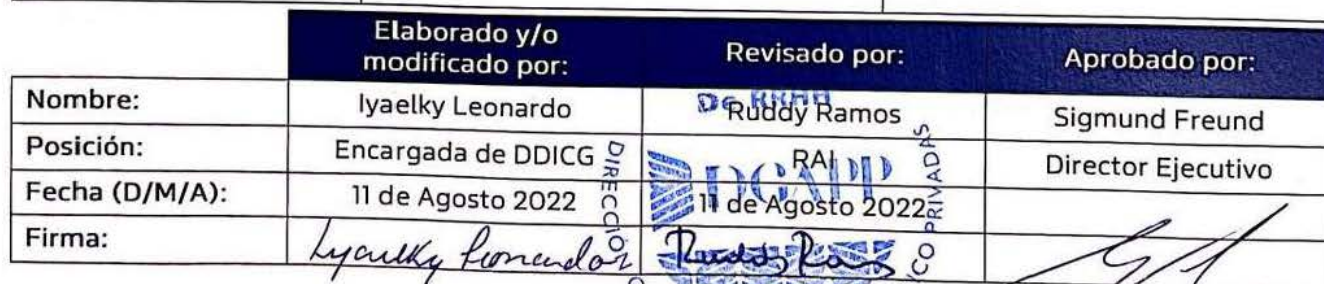 Elaborado y/o modificado por: Revisado por: Aprobado por:
Nombre: Iyaelky Leonardo Ruddy Ramos Sigmund Freund
Posición: Encargada de DDICG RAI Director Ejecutivo
Fecha (D/M/A): 11 de Agosto 2022 11 de Agosto 2022
Firma: Iyaelky Leonardo Ruddy Ramos
De RRHH
DGAPP
DIRECCIÓN
ICO PRIVADAS